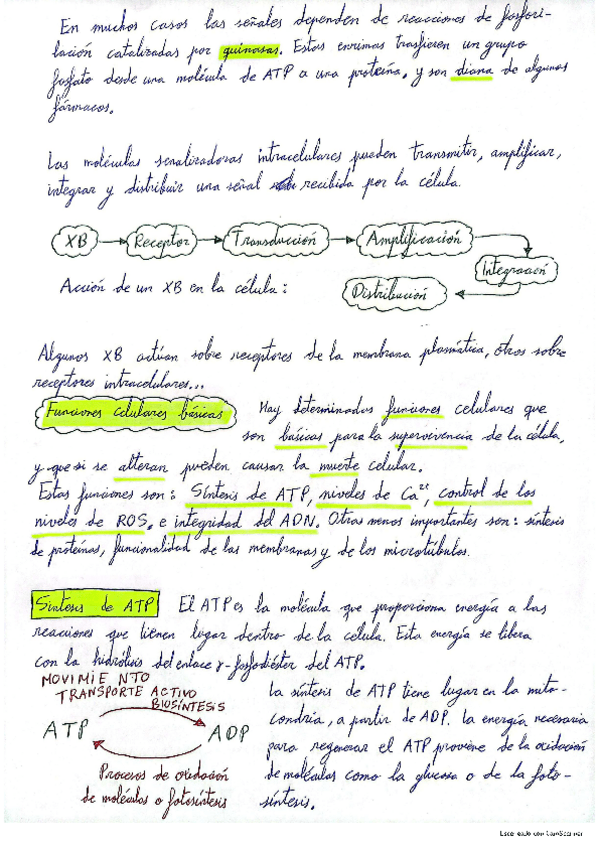 En muchos casos las señales dependen de reacciones de fosfori-
lación catalizadas por quinasas. Estas enzimas trasfieren un grupo
fosfato desde una molécula de ATP a una proteína, y son diana de algunos
fármacos.
Las moléculas señalizadoras intracelulares pueden transmitir, amplificar,
integrar y distribuir una señal recibida por la célula.
XB Receptor Transducción Amplificación
Integración
Acción de un XB en la célula: Distribución
Algunos XB actúan sobre receptores de la membrana plasmática, otros sobre
receptores intracelulares...
Funciones celulares básicas Hay determinadas funciones celulares que
son básicas para la supervivencia de la célula,
y que si se alteran pueden causar la muerte celular.
Estas funciones son: Síntesis de ATP, niveles de Ca²⁺, control de los
niveles de ROS, e integridad del ADN. Otras menos importantes son: síntesis
de proteínas, funcionalidad de las membranas y de los microtúbulos.
Síntesis de ATP El ATP es la molécula que proporciona energía a las
reacciones que tienen lugar dentro de la célula. Esta energía se libera
con la hidrólisis del enlace γ-fosfodiéster del ATP.
MOVIMIENTO
TRANSPORTE ACTIVO
BIOSÍNTESIS
ATP ADP
Procesos de oxidación
de moléculas o fotosíntesis
La síntesis de ATP tiene lugar en la mito-
condria, a partir de ADP. La energía necesaria
para regenerar el ATP proviene de la oxidación
de moléculas como la glucosa o de la foto-
síntesis.
Escaneado con CamScanner